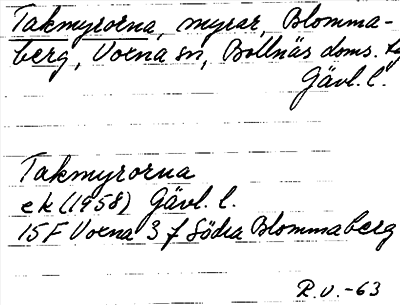 Takmyrorna, myrar, Blomma-
berg, Voxna sn, Bollnäs doms. fg
Gävl. l.
Takmyrorna
ek (1958) Gävl. l.
15F Voxna 3 f Södra Blommaberg
R.V. -63